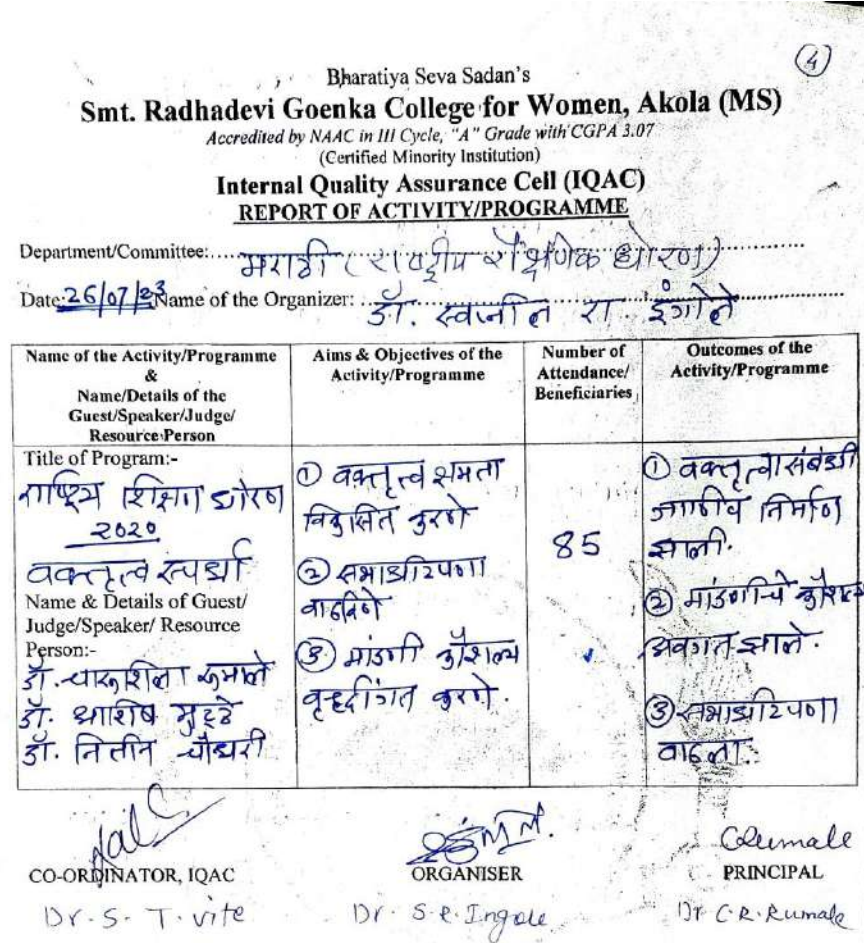 4
Bharatiya Seva Sadan's
Smt. Radhadevi Goenka College for Women, Akola (MS)
Accredited by NAAC in III Cycle, "A" Grade with CGPA 3.07
(Certified Minority Institution)
Internal Quality Assurance Cell (IQAC)
REPORT OF ACTIVITY/PROGRAMME
Department/Committee: मराठी (राष्ट्रीय शैक्षणिक धोरण)
Date: 26/07/23 Name of the Organizer: डॉ. स्वप्नील रा. इंगोले
Name of the Activity/Programme
&
Name/Details of the
Guest/Speaker/Judge/
Resource Person
Aims & Objectives of the
Activity/Programme
Number of
Attendance/
Beneficiaries
Outcomes of the
Activity/Programme
Title of Program:-
राष्ट्रिय शिक्षण धोरण
2020
वक्तृत्व स्पर्धा
Name & Details of Guest/
Judge/Speaker/ Resource
Person:-
डॉ. चारूशिला रूमाले
डॉ. आशिष मुद्दे
डॉ. नितीन चौधरी
① वक्तृत्व क्षमता
विकसित करणे
② सभाधारिपणा
वाढविणे
③ मांडणी कौशल्य
वृद्धींगत करणे.
85
① वक्तृत्वासंबंधी
जाणीव निर्माण
झाली.
② मांडणीचे कौशल्य
अवगत झाले.
③ सभाधारिपणा
वाढला.
CO-ORDINATOR, IQAC
Dr. S. T. vite
ORGANISER
Dr. S. R. Ingole
Rumale
PRINCIPAL
Dr C. R. Rumale